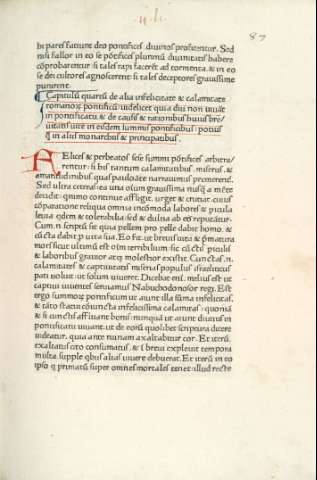 87
bi pares facturū deo pontifices diuinos profitentur. Sed
nisi fallor in eo se pōtifices plurimū diuinitatis habere
cōprobarentur si tales rapi facerēt ad tormenta. & in eo
se dei cultores agnoscerent si tales deceptores grauissime
punirent.
Capitulū quartū de alia infelicitate & calamitate
romanoꝝ pontificū uidelicet quia diu non uiuūt
in pontificatu & de causis & rationibus huius bre/
uitatis uite in eisdem summis pontificibus potius
q̄ in aliis monarchis & principatibus.
FElices & perbeatos sese summi pōtifices arbitra/
rentur si his tantum calamitatibus. miseriis. &
amaritudinibus quas pauloāte narrauimus premerent.
Sed ultra ceteras ea una olim grauissima nusq̄ a mēte
decidit. quinimo continue affligit. urget & cruciat. cuius
cōparatione reliqua omnia incōmoda labores & picula
leuia qdem & tolerabilia sed & dulcia ab eis reputātur.
Cum. n. scriptū sit quia pellem pro pelle dabit homo. &
cūcta dabit p uita sua. Eo fit. ut breuis uita & pmatura
mors sicut ultimū est oīm terribilium. sic cūctis piculis
& laboribus grauior atq; molestior existat. Cunctas. n.
calamitates & captiuitates miserias populus israeliticus
pati uoluit. ut solum uiueret. Dicebat em̄. melius est ut
captiui uiuentes seruiamus Nabuchodonosor regi. Est
ergo summoꝝ pontificum ut aiunt illa summa infelicitas.
& tāto statui cōiuncta infelicissima calamitas. quoniā
& si cunctis affluant bonis. nunquā ut aiunt diutius in
pontificatu uiuant. ut de eorū quolibet scriptura dicere
uideatur. quia ante ruinam exaltabitur cor. Et iterū.
exaltatus cito consumatus. & ī breui expleuit tempora
multa. supple qbus alias uiuere debuerat. Et iterū in eo
ipso q primatū super omnes mortales tenet. illud recte